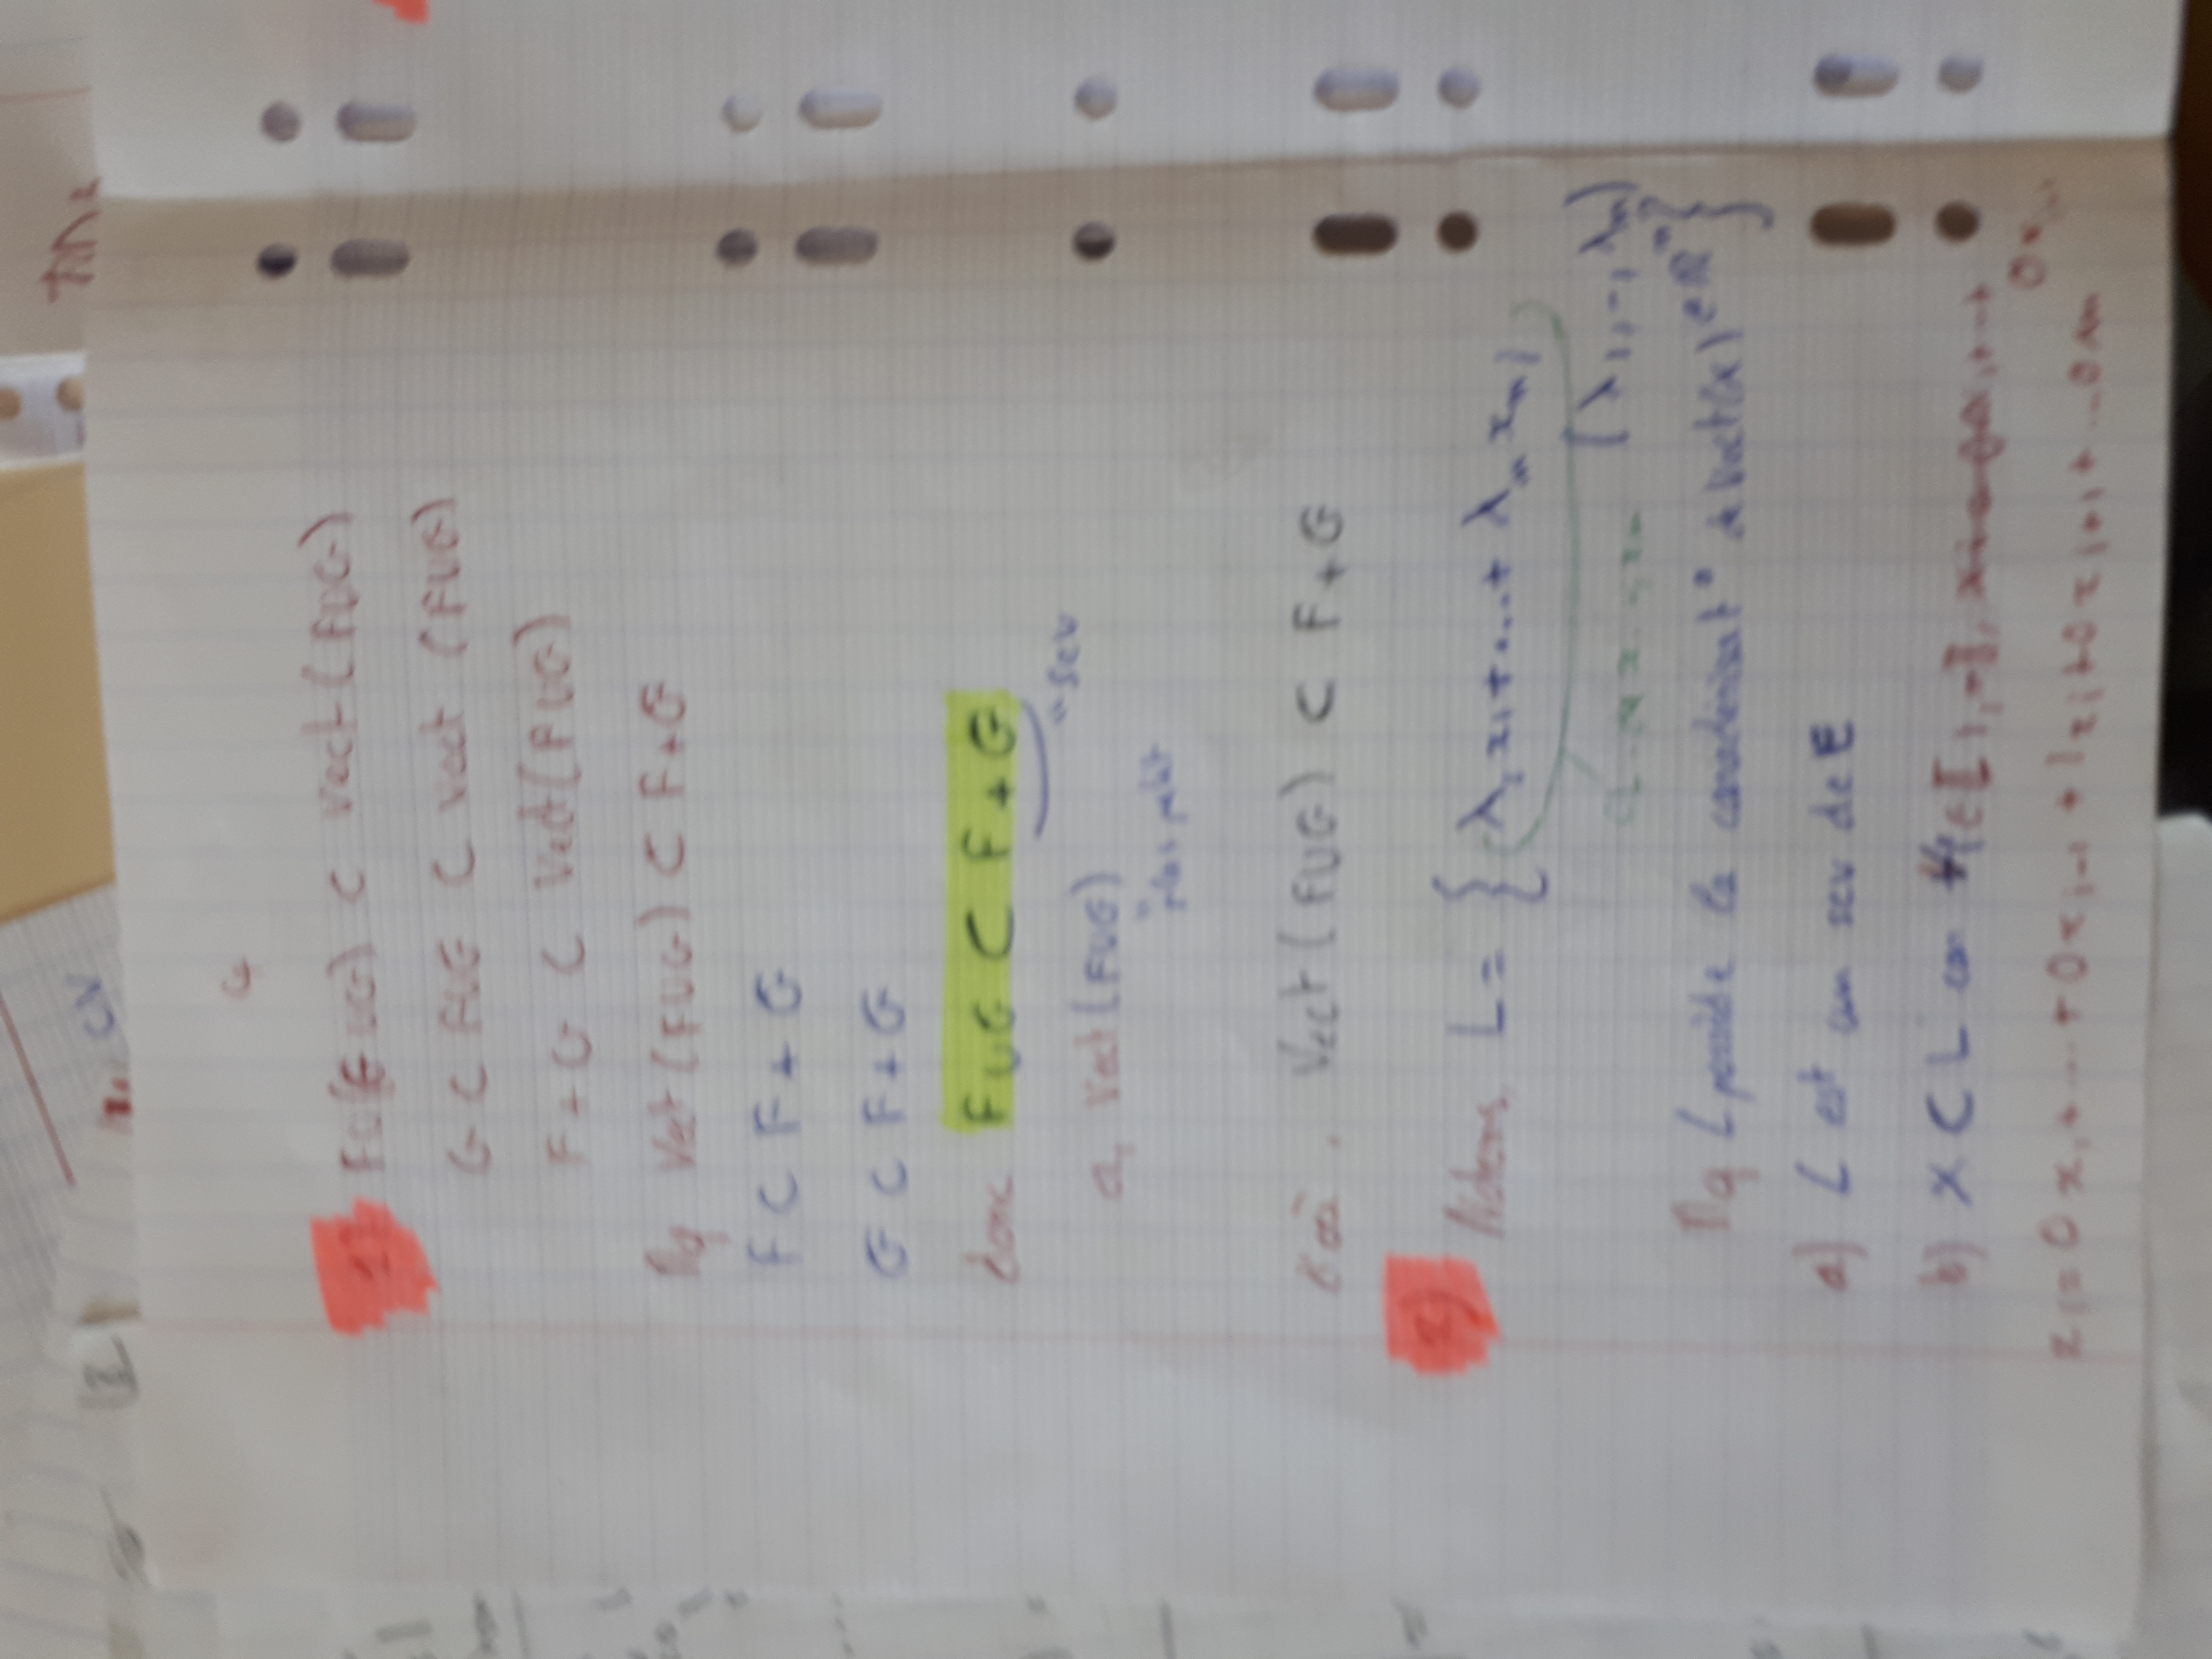 1) F C (F U G) C Vect (FUG)
G C FUG C Vect (FUG)
F + G C Vect (FUG)
Mq Vect (FUG) C F+G
F C F + G
G C F + G
donc F U G C F + G
"sev
or, Vect (FUG)
"plus petit
d'où, Vect (FUG) C F + G
2) Notons, L = { λ₁x₁ + ... + λₙ xₙ,
(λ₁, -, λₙ)
∈ ℝⁿ }
CL
Mq L possède la caractérisat° de Vect(x)
a) L est un sev de E
b) X C L car ∀i ∈ [1,-],
xᵢ = 0x₁ + ... + 0xᵢ₋₁ + 1xᵢ + 0xᵢ₊₁ + ... 0xₙ